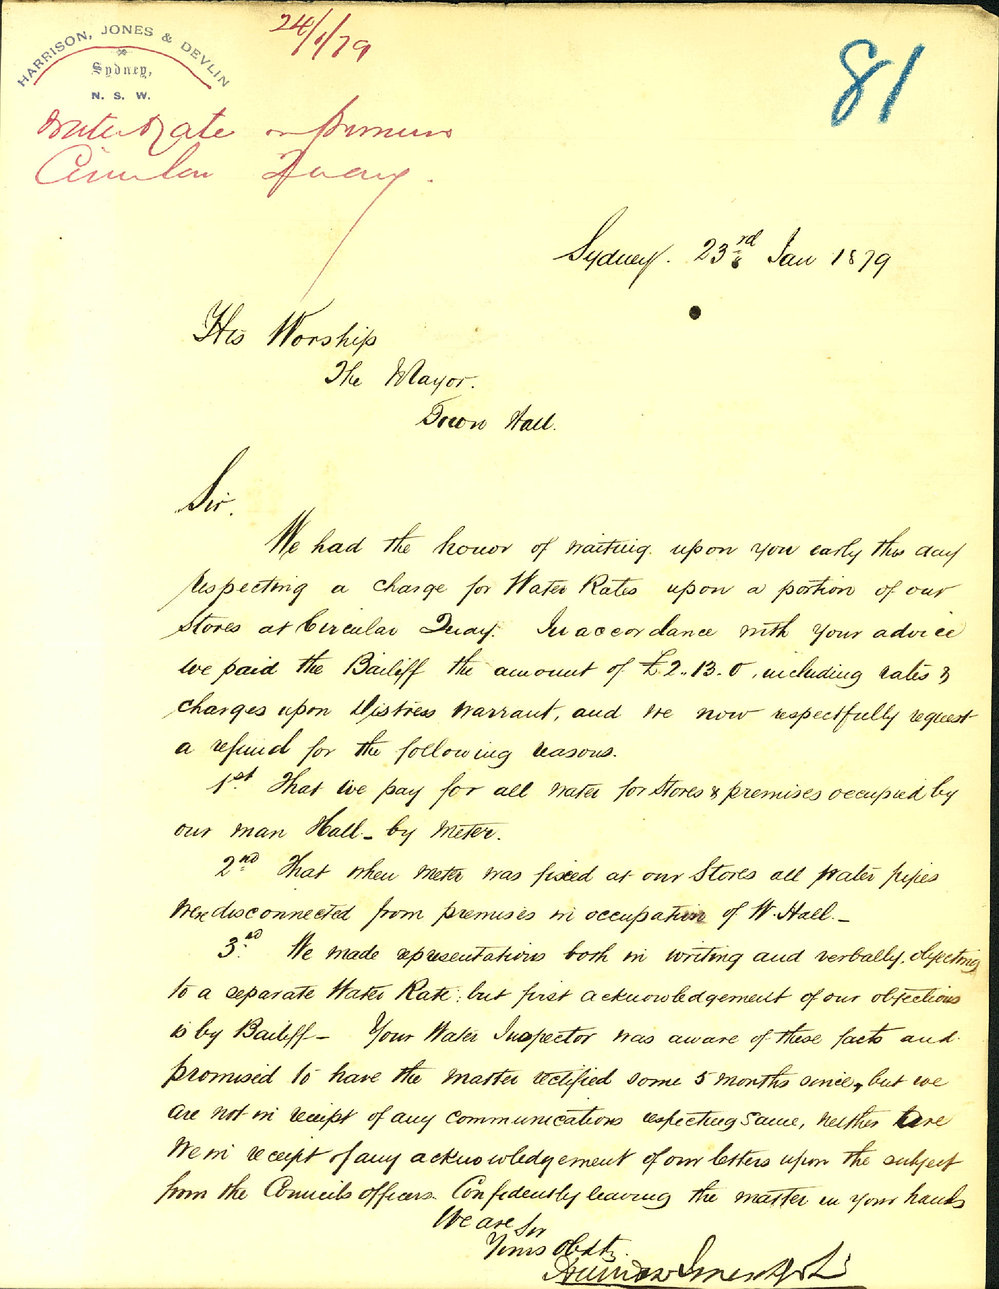 HARRISON, JONES & DEVLIN
Sydney,
N. S. W.
24/1/79
81
Water Rate on premises
Circular Quay.
Sydney. 23rd Jan 1879
His Worship
The Mayor.
Town Hall.
Sir.
We had the honor of waiting upon you early this day
respecting a charge for Water Rates upon a portion of our
Stores at Circular Quay. In accordance with your advice
we paid the Bailiff the amount of £2..13.0, including rates &
charges upon Distress Warrant, and we now respectfully request
a refund for the following reasons.
1st That we pay for all water for Stores & premises occupied by
our man Hall - by meter.
2nd That when meter was fixed at our Stores all water pipes
were disconnected from premises in occupation of W. Hall. -
3rd We made representations both in writing and verbally, objecting
to a separate Water Rate: but first acknowledgement of our objections
is by Bailiff - Your Water Inspector was aware of these facts and
promised to have the matter rectified some 5 months since, but we
are not in receipt of any communications respecting same, neither are
we in receipt of any acknowledgement of our letters upon the subject
from the Councils officers. Confidently leaving the matter in your hands
We are Sir
Yours obdt
Harrison Jones & Devlin